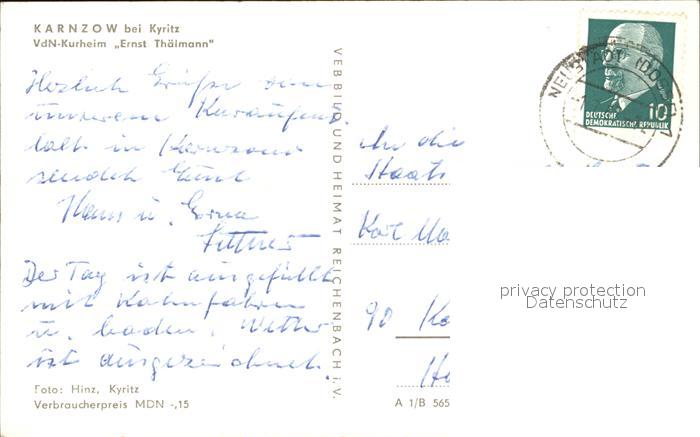 KARNZOW bei Kyritz
VdN-Kurheim „Ernst Thälmann"
Herzlich Grüße von
unserem Kuraufent
halt in Karnzow
sendet Euch
Hans u. Erna
Der Tag ist ausgefüllt
mit Kahnfahren
u. baden. Wetter
ist ausgezeichnet.
Foto: Hinz, Kyritz
Verbraucherpreis MDN -,15
VEB BILD UND HEIMAT REICHENBACH i.V.
An die
Staats
Karl Ma
90 Ka
A 1/B 565
NEUSTADT (DOSSE)
DEUTSCHE
DEMOKRATISCHE REPUBLIK
10
privacy protection
Datenschutz